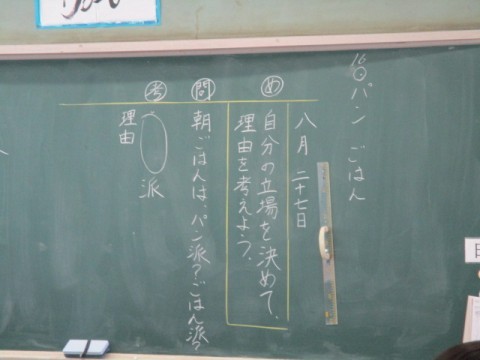 16◯パン ごはん
八月 二十七日
め 自分の立場を決めて、
理由を考えよう。
問 朝ごはんは、パン派?ごはん派?
考 ◯派
理由